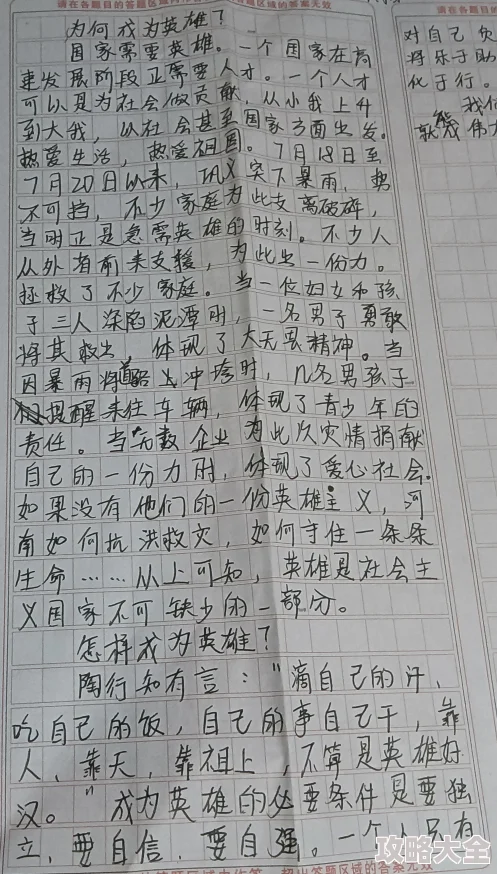 请在各题目的答题区域内作答
为何成为英雄？
国家需要英雄。一个国家在高
速发展阶段正需要人才。一个人才
可以是为社会做贡献，从小我上升
到大我，以社会甚至国家方面出发。
热爱生活，热爱祖国。7月18日至
7月20日以来，巩义突下暴雨，势
不可挡，不少家庭为此支离破碎，
当时正是急需英雄的时刻。不少人
从外省前来支援，为此出一份力。
拯救了不少家庭。当一位妇女和孩
子三人深陷泥潭时，一名男子勇敢
将其救出，体现了大无畏精神。当
因暴雨将道路上冲垮时，几名男孩子
提醒来往车辆，体现了青少年的
责任。当无数企业为此次灾情捐献
自己的一份力时，体现了爱心社会.
如果没有他们的一份英雄主义，河
南如何抗洪救灾，如何守住一条条
生命……从上可知，英雄是社会主
义国家不可缺少的一部分。
怎样成为英雄？
陶行知有言："滴自己的汗、
吃自己的饭，自己的事自己干，靠
人、靠天，靠祖上，不算是英雄好
汉。"成为英雄的必要条件是要独
立，要自信，要自强。一个人只有
请在各题目的答题区域内作答，超出答题区域的答案无效
对自己负
将乐于助
化于行。
我们
就能
伟大
攻略大全